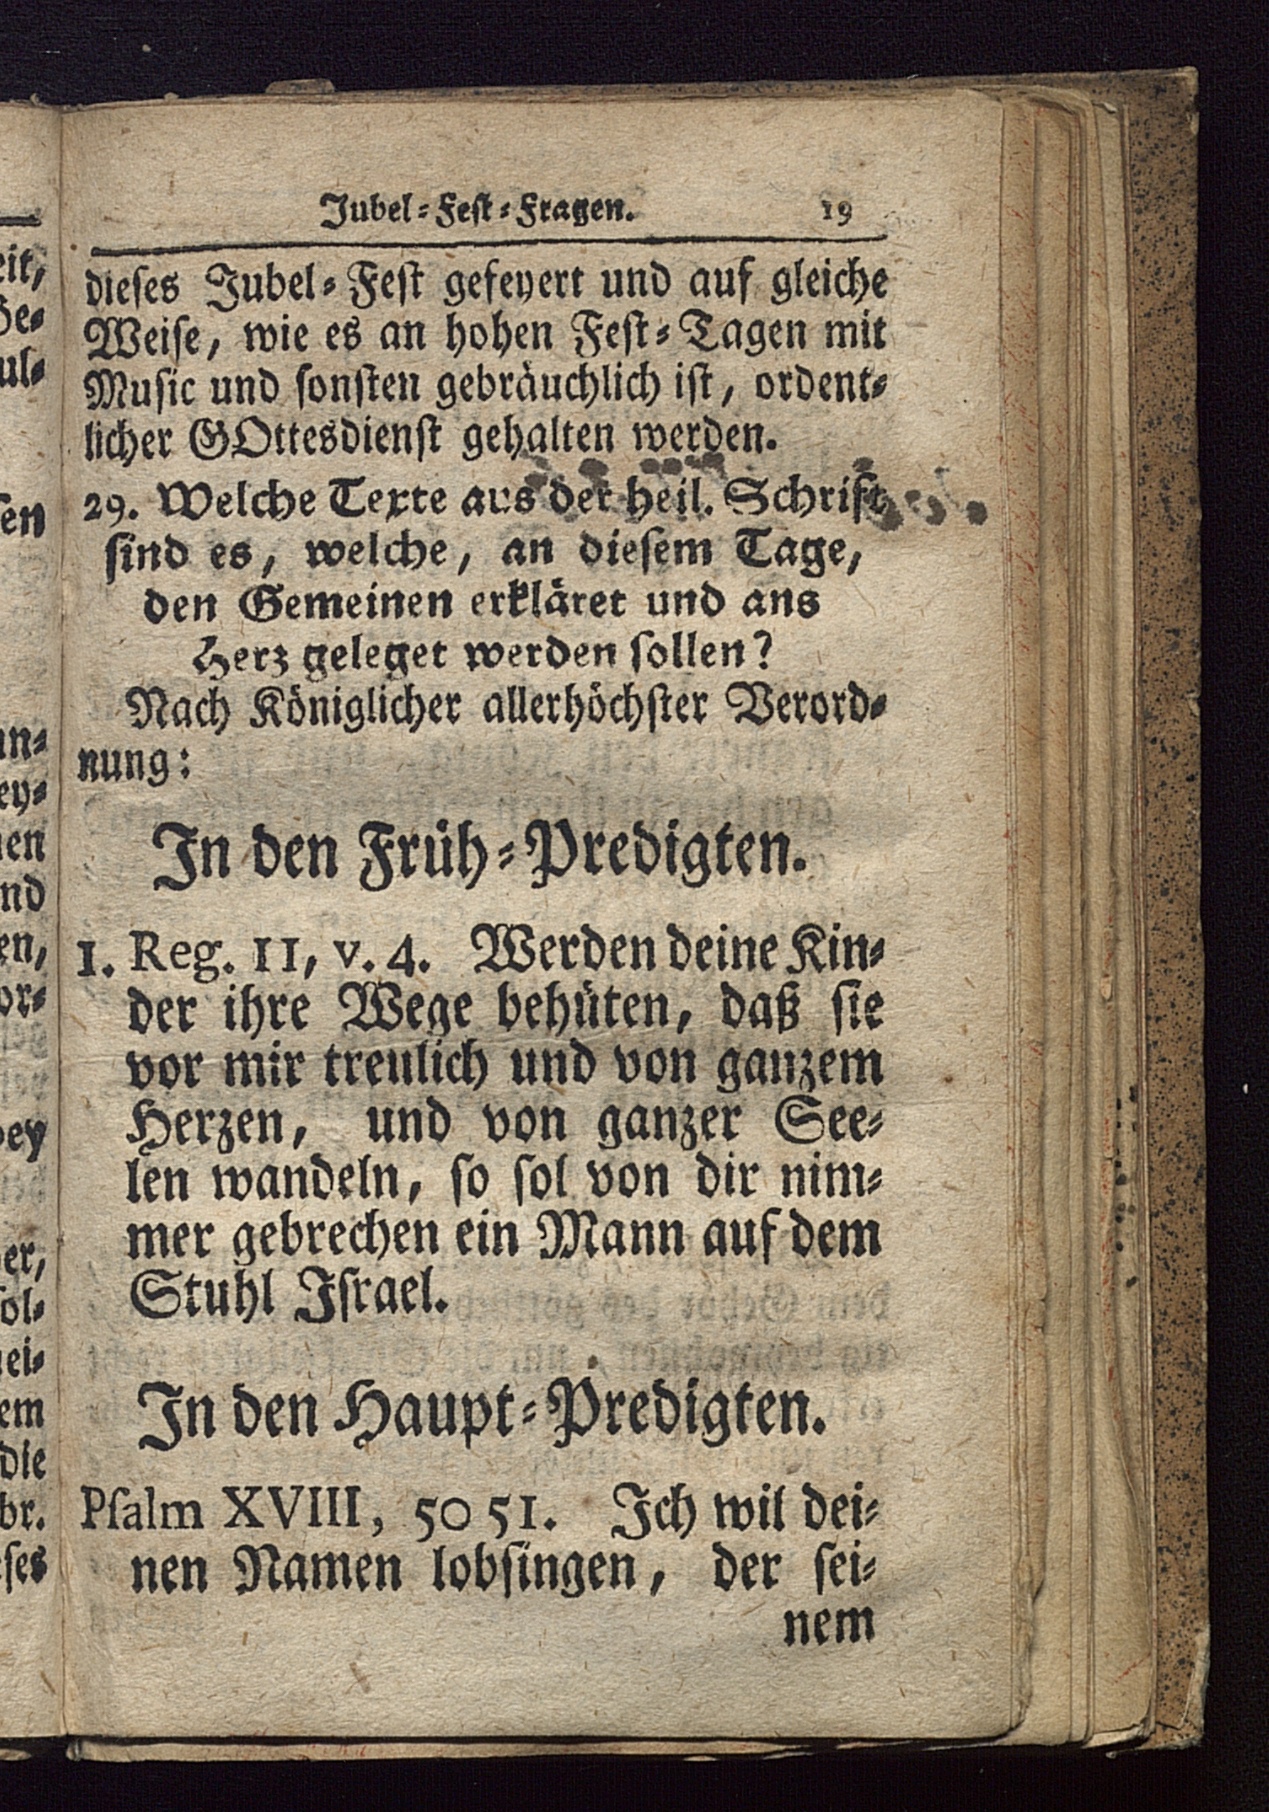 Jubel-Fest-Fragen. 19
dieses Jubel-Fest gefeyert und auf gleiche
Weise, wie es an hohen Fest-Tagen mit
Music und sonsten gebräuchlich ist, ordent-
licher GOttesdienst gehalten werden.
29. Welche Texte aus der heil. Schrift
sind es, welche, an diesem Tage,
den Gemeinen erkläret und ans
Herz geleget werden sollen?
Nach Königlicher allerhöchster Verord-
nung:
In den Früh-Predigten.
1. Reg. 11, v. 4. Werden deine Kin-
der ihre Wege behüten, daß sie
vor mir treulich und von ganzem
Herzen, und von ganzer See-
len wandeln, so sol von dir nim-
mer gebrechen ein Mann auf dem
Stuhl Israel.
In den Haupt-Predigten.
Psalm XVIII, 50 51. Ich wil dei-
nen Namen lobsingen, der sei-
nem